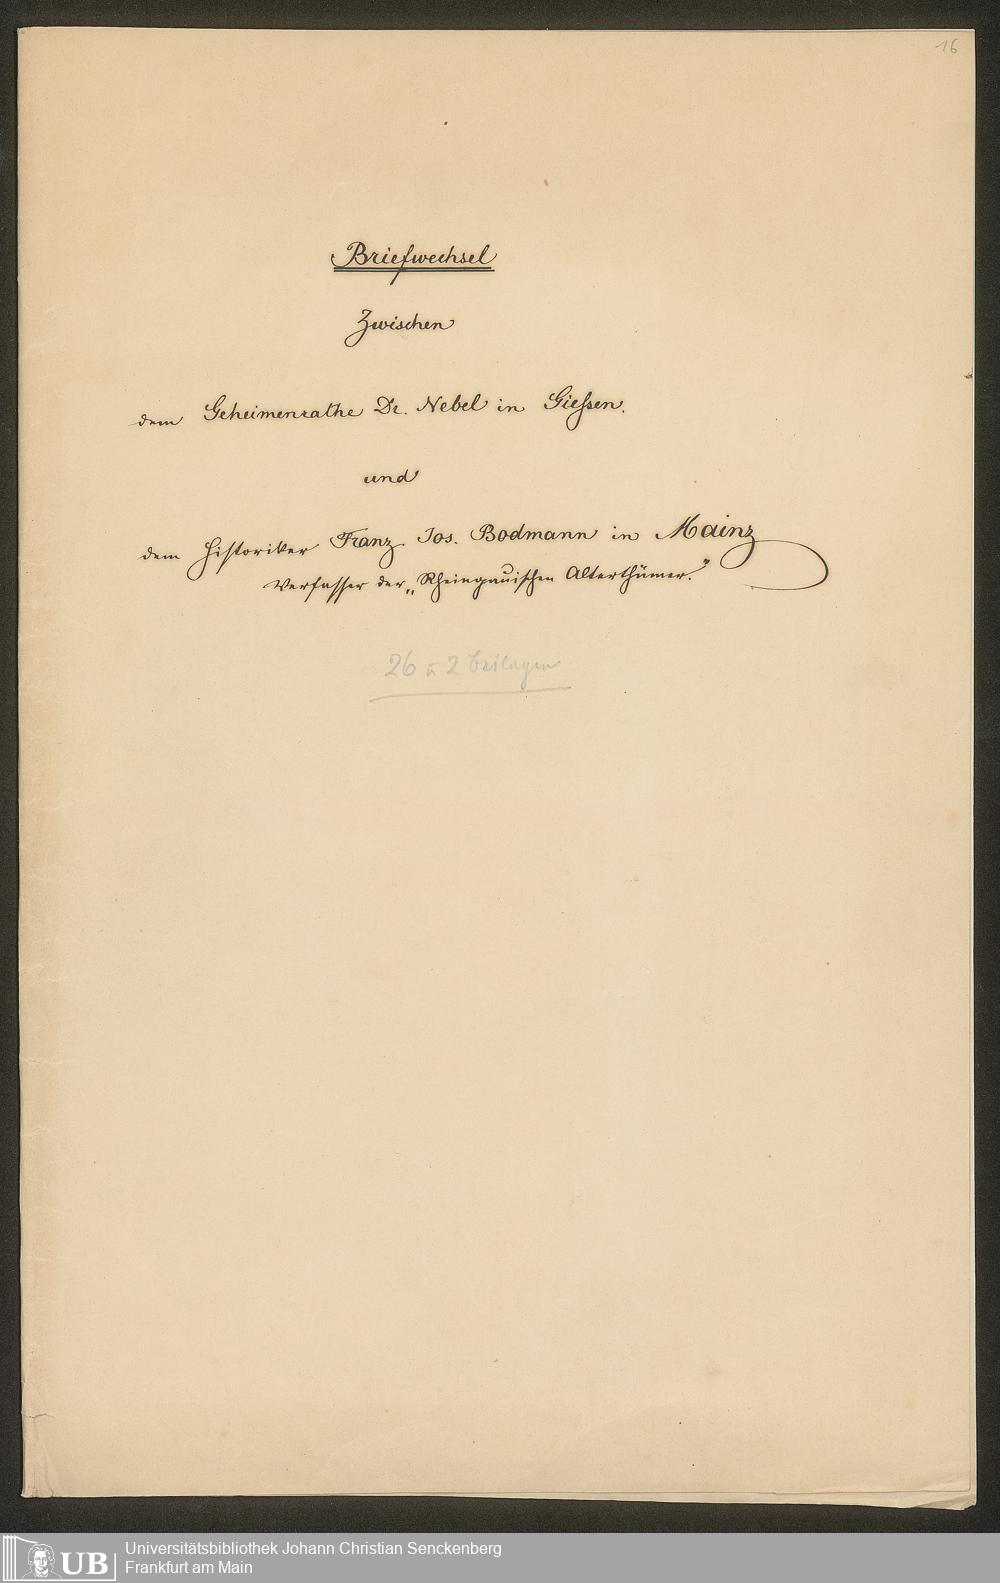 16
Briefwechsel
Zwischen
dem Geheimenrathe Dr. Nebel in Giessen.
und
dem Historiker Franz Jos. Bodmann in Mainz
Verfasser der „Rheingauischen Alterthümer.“
26 u 2 Beilagen
UB
Universitätsbibliothek Johann Christian Senckenberg
Frankfurt am Main